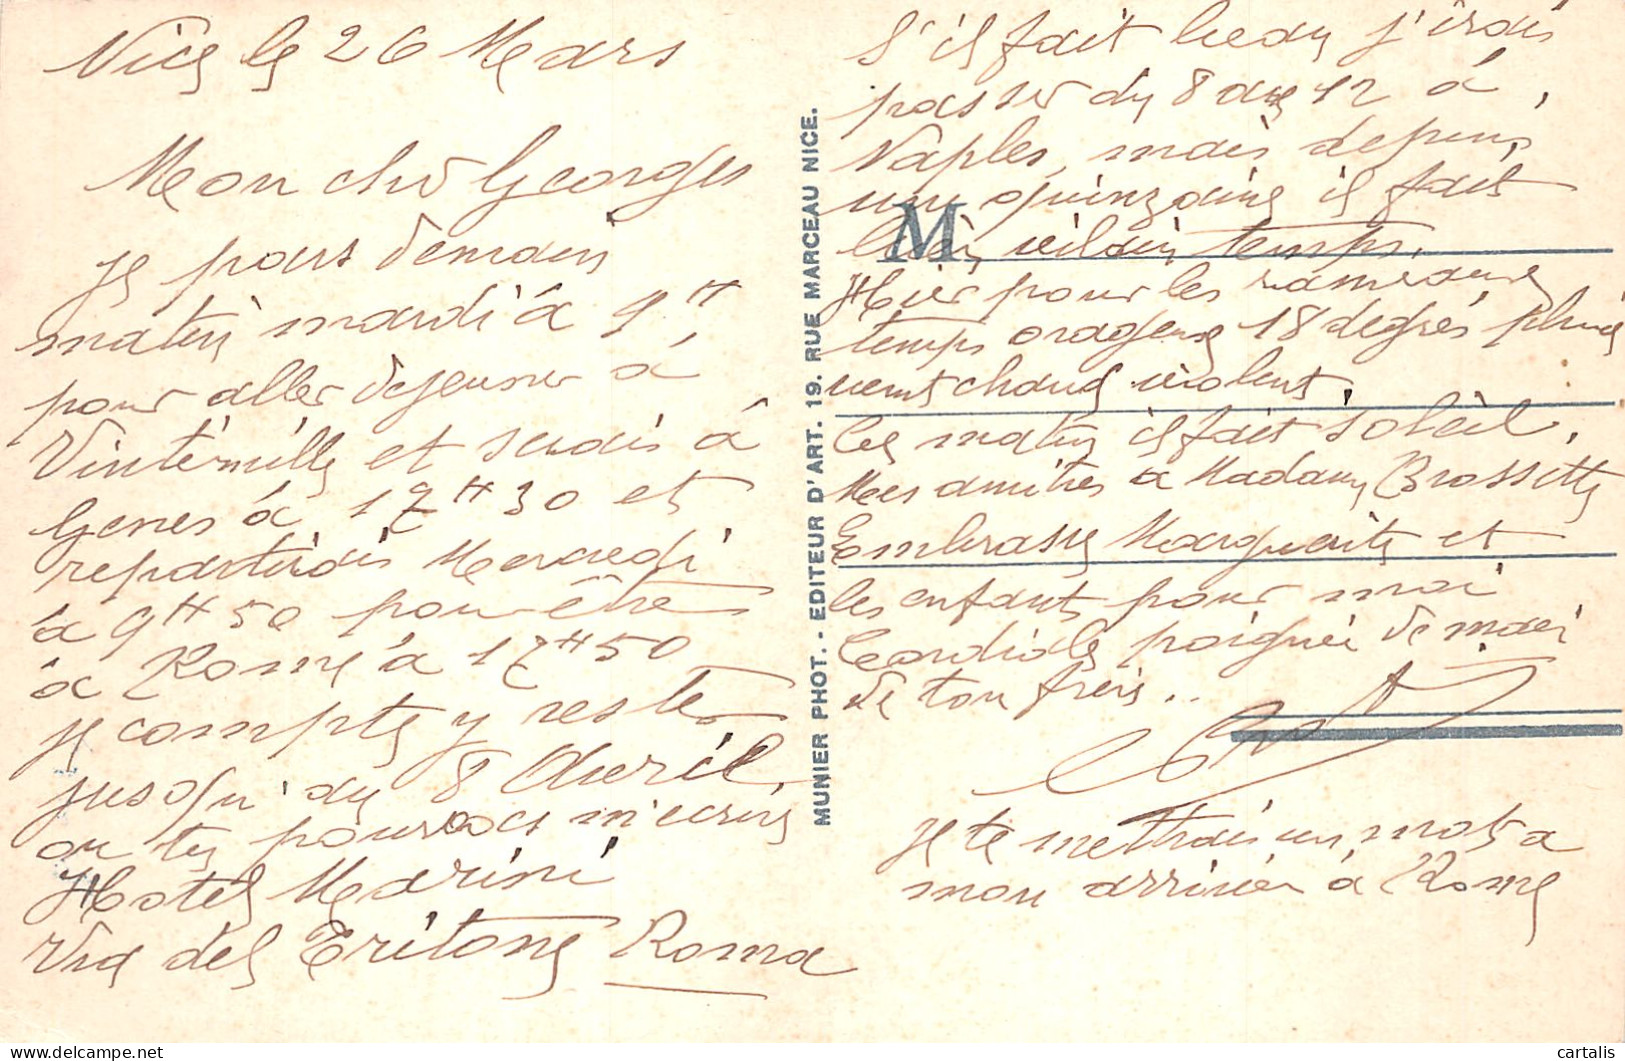 Nice le 26 Mars
Mon cher Georges
je pars demain
matin mardi à 9H,
pour aller dejeuner à
Vintemille et serais à
Genes à 17H30 et
repartirais Mercredi
à 9H50 pour être
à Rome à 17H50
je compte y rester
jusqu'au 8 Avril
ou tu pourras m'ecrire
Hotel Marini
Via del Tritone Roma
S'il fait beau j'irais
passer du 8 au 12 à
Naples, mais depuis
une quinzaine il fait
vilain temps.
Hier pour les rameaux
temps orageux 18 degrés pluie
vent chaud violent.
Ce matin il fait soleil.
Mes amitiés a Madame Brossette
Embrasse Marguerite et
les enfants pour moi
Cordiale poignée de main
de ton frère..
je te mettrais un mot a
mon arrivée à Rome
M
MUNIER PHOT. - EDITEUR D'ART. 19. RUE MARCEAU NICE.
cartalis